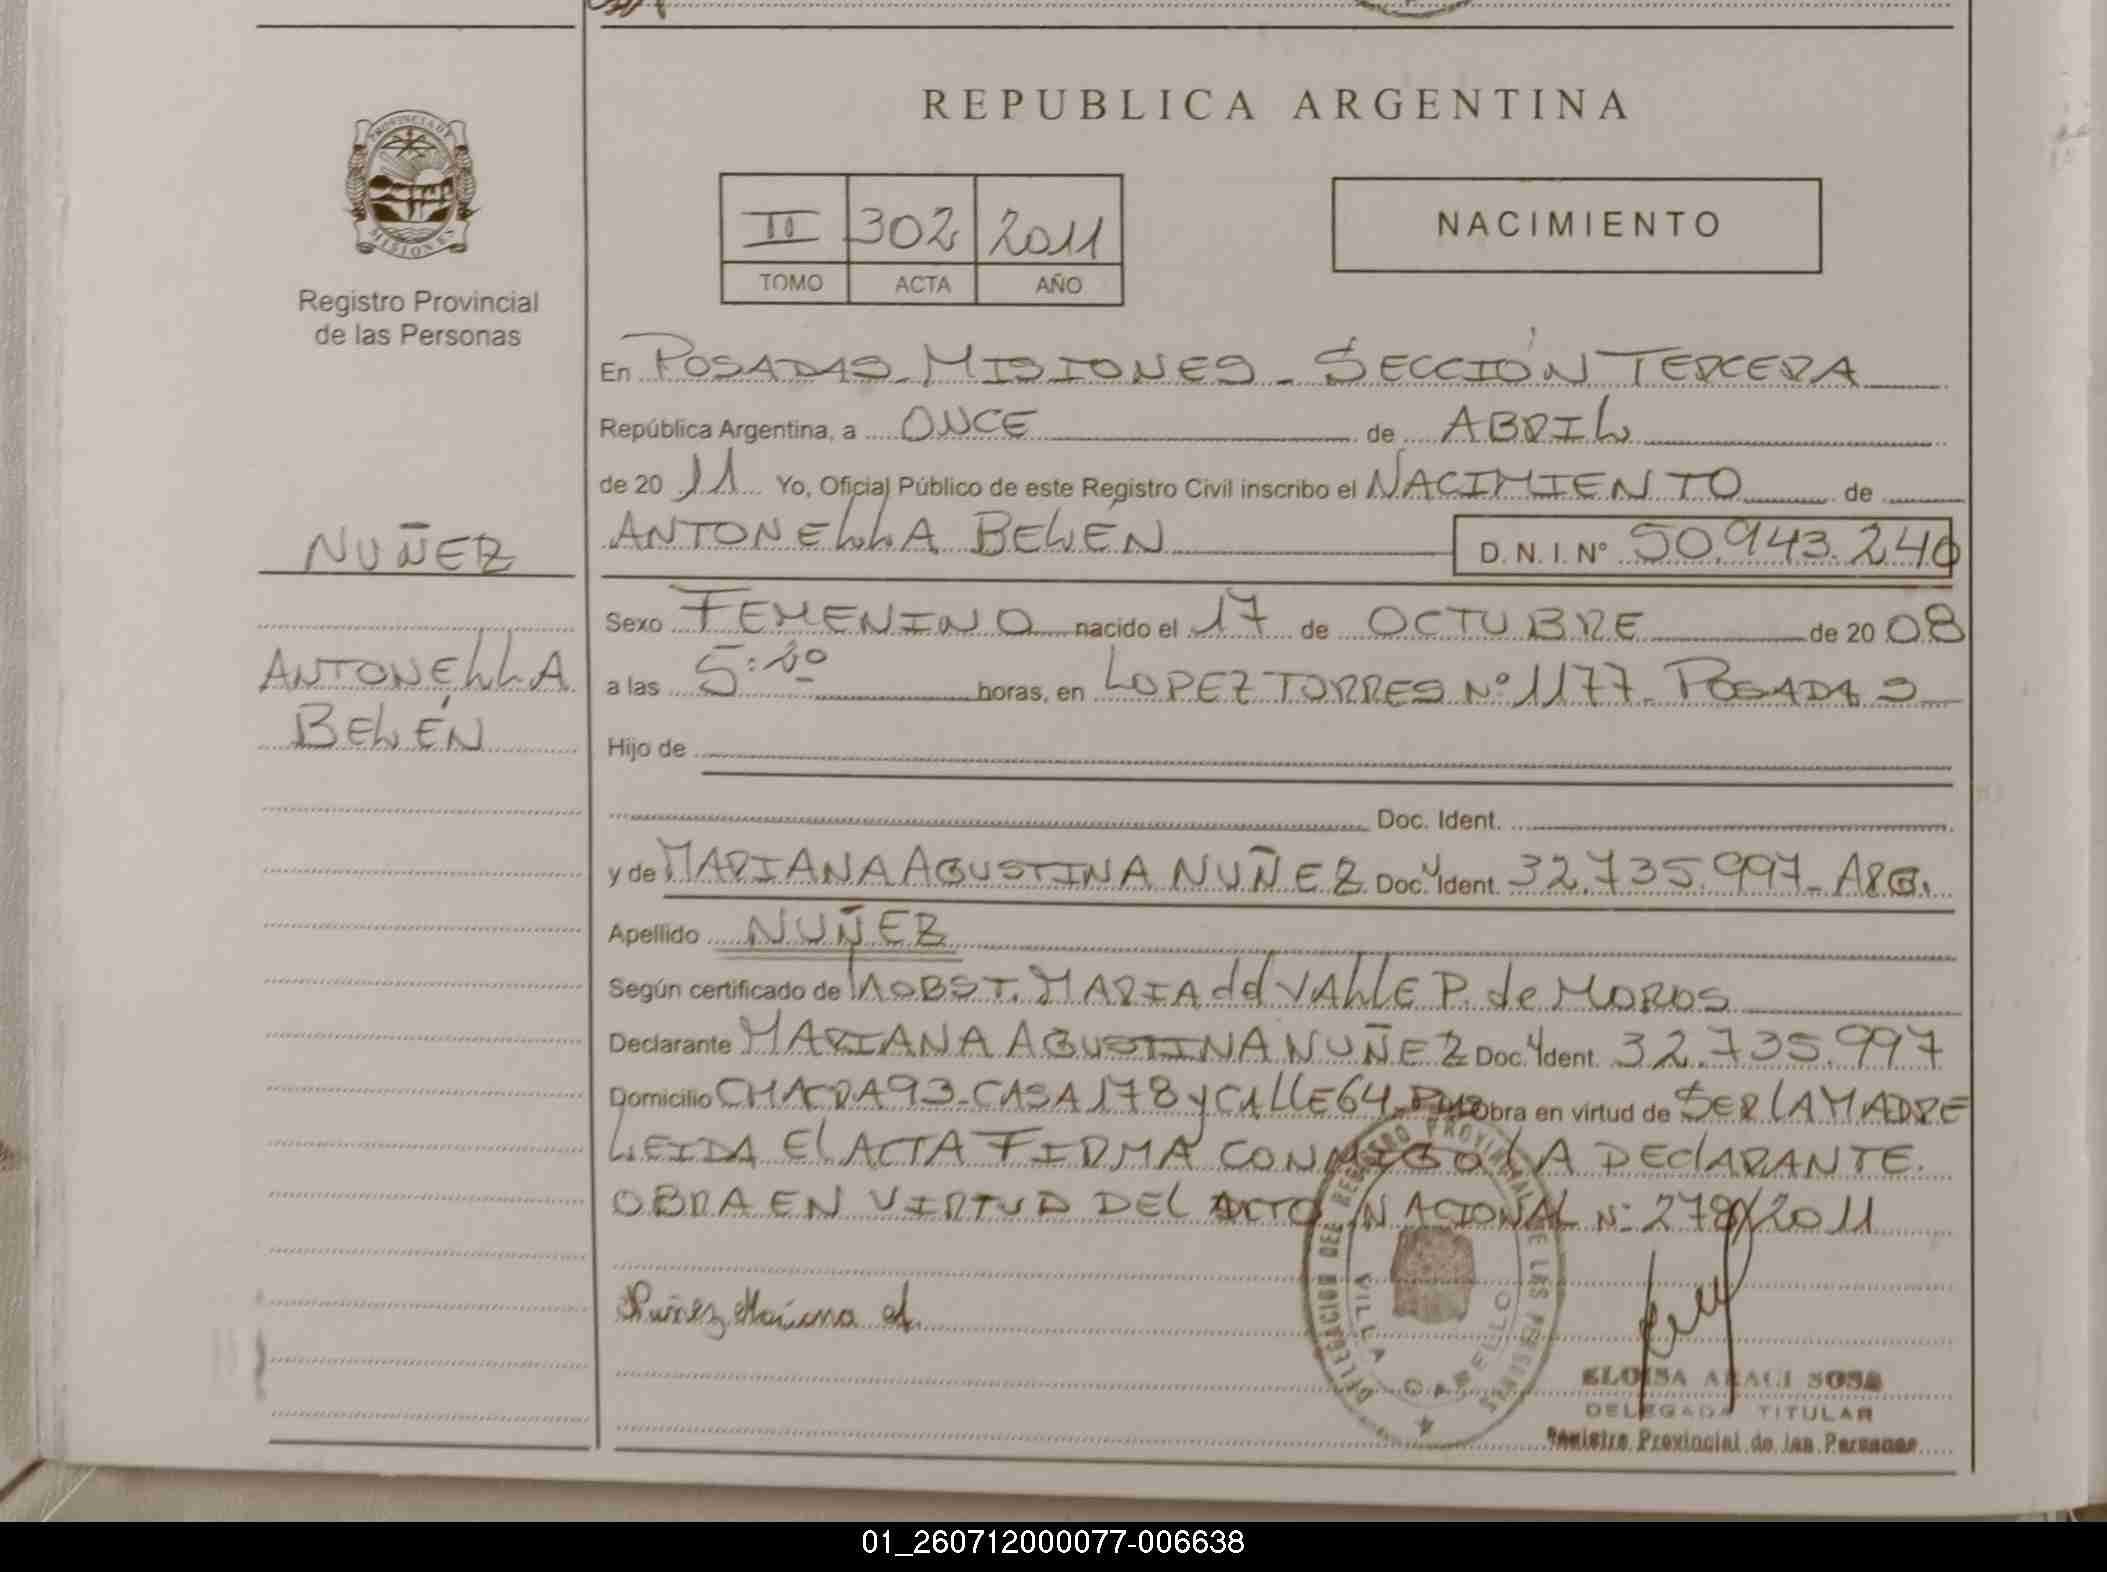 REPUBLICA ARGENTINA
PROVINCIA DE MISIONES
Registro Provincial
de las Personas
II 302 2011
TOMO ACTA AÑO
NACIMIENTO
En POSADAS-MISIONES - SECCIÓN TERCERA
República Argentina, a ONCE de ABRIL
de 2011 Yo, Oficial Público de este Registro Civil inscribo el NACIMIENTO de
NUÑEZ
ANTONELLA BELÉN D.N.I. Nº 50.943.240
Sexo FEMENINO nacido el 17 de OCTUBRE de 2008
ANTONELLA
BELÉN
a las 5:20 horas, en LOPEZ TORRES Nº 1177- POSADAS
Hijo de
Doc. Ident.
y de MARIANA AGUSTINA NUÑEZ Doc. Ident. 32.735.997- ARG.
Apellido NUÑEZ
Según certificado de OBST. MARIA del VALLE P. de MOROS
Declarante MARIANA AGUSTINA NUÑEZ Doc. Ident. 32.735.997
Domicilio CHACRA 93-CASA 178 y CALLE 64- Obra en virtud de SER LA MADRE
LEIDA El ACTA FIRMA CONMIGO LA DEClARANTE.
OBRA EN VIRTUD DEL NACIONAL Nº 278/2011
Nuñez Mariana A.
DELEGACION DEL REGISTRO PROVINCIAL DE LAS PERSONAS
VILLA CABELLO
ELOISA ARACI SOSA
DELEGADA TITULAR
Registro Provincial de las Personas
01_260712000077-006638